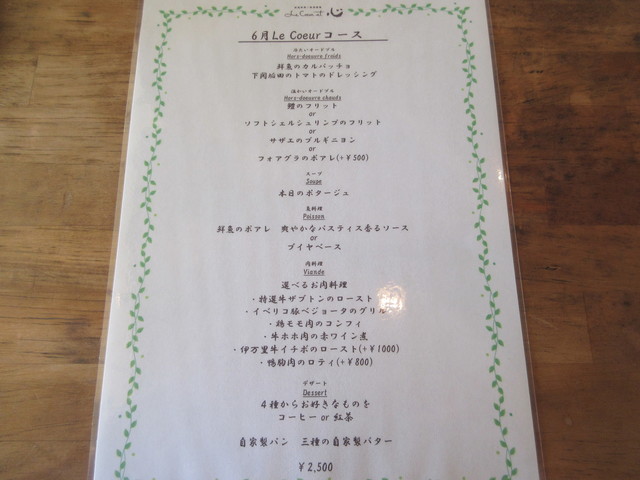 Le Coeur et 心
6月Le Coeurコース
冷たいオードブル
Hors-doeuvre froids
鮮魚のカルパッチョ
下関垢田のトマトのドレッシング
温かいオードブル
Hors-doeuvre chauds
鱧のフリット
or
ソフトシェルシュリンプのフリット
or
サザエのブルギニヨン
or
フォアグラのポアレ(+￥500)
スープ
Soupe
本日のポタージュ
魚料理
Poisson
鮮魚のポアレ　爽やかなパスティス香るソース
or
ブイヤベース
肉料理
Viande
選べるお肉料理
・特選牛ザブトンのロースト
・イベリコ豚ベジョータのグリル
・鴨モモ肉のコンフィ
・牛ホホ肉の赤ワイン煮
・伊万里牛イチボのロースト(+￥1000)
・鴨胸肉のロティ(+￥800)
デザート
Dessert
4種からお好きなものを
コーヒー or 紅茶
自家製パン　三種の自家製バター
￥2,500